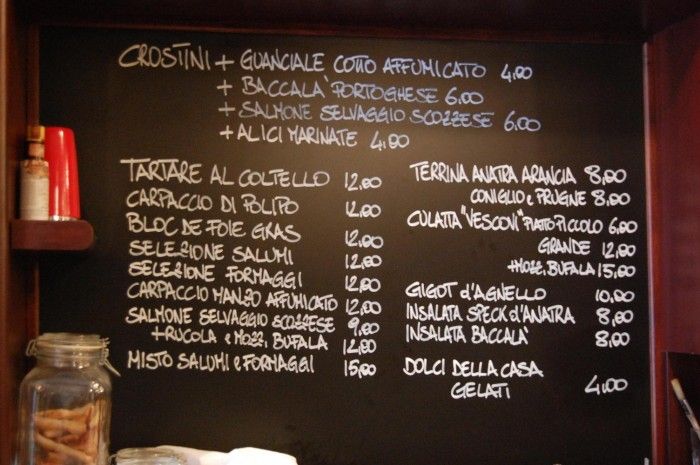 CROSTINI + GUANCIALE COTTO AFFUMICATO 4,00
+ BACCALA' PORTOGHESE 6,00
+ SALMONE SELVAGGIO SCOZZESE 6,00
+ ALICI MARINATE 4,00
TARTARE AL COLTELLO 12,00
CARPACCIO DI POLIPO 12,00
BLOC DE FOIE GRAS 12,00
SELEZIONE SALUMI 12,00
SELEZIONE FORMAGGI 12,00
CARPACCIO MANZO AFFUMICATO 12,00
SALMONE SELVAGGIO SCOZZESE 9,00
+ RUCOLA e MOZZ, BUFALA 12,00
MISTO SALUMI e FORMAGGI 15,00
TERRINA ANATRA ARANCIA 8,00
CONIGLIO e PRUGNE 8,00
CULATTA "VESCOVI" PIATTO PICCOLO 6,00
GRANDE 12,00
+MOZZ, BUFALA 15,00
GIGOT d'AGNELLO 10,00
INSALATA SPECK d'ANATRA 8,00
INSALATA BACCALA' 8,00
DOLCI DELLA CASA
GELATI 4,00